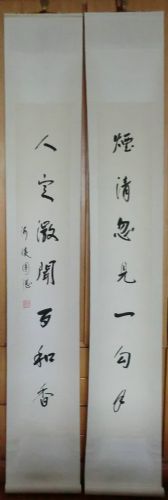 煙清忽見一勾月
人定微聞百和香